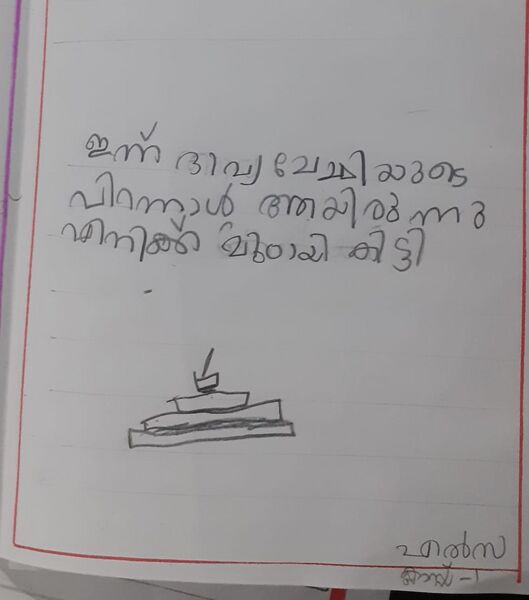 ഇന്ന് ദിവ്യ ചേച്ചിയുടെ
പിറന്നാൾ ആയിരുന്നു
എനിക്ക് മുഠായി കിട്ടി
എൽസ
ക്ലാസ്സ് -1